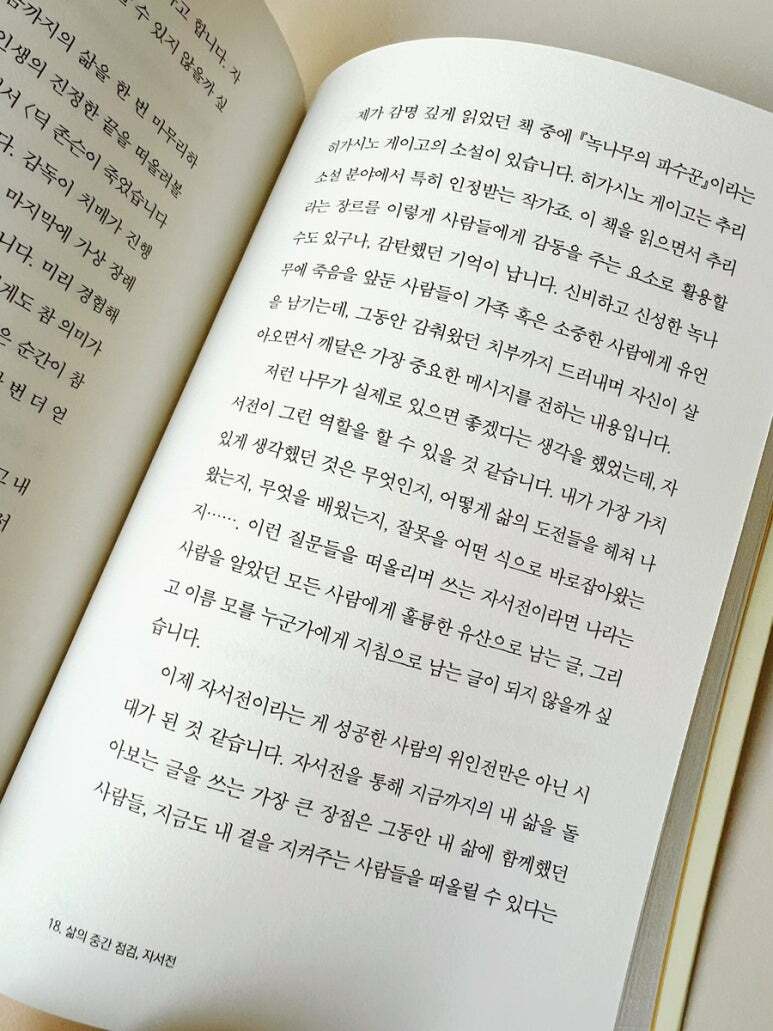 고 합니다. 자
금까지의 삶을 한 번 마무리하
수 있지 않을까 싶
인생의 진정한 끝을 떠올려볼
서 〈딕 존슨이 죽었습니다
다. 감독이 치매가 진행
마지막에 가상 장례
니다. 미리 경험해
게도 참 의미가
은 순간이 참
번 더 얻
그 내
서
제가 감명 깊게 읽었던 책 중에 『녹나무의 파수꾼』이라는
허가시노 게이고의 소설이 있습니다. 히가시노 게이고는 추리
소설 분야에서 특히 인정받는 작가죠. 이 책을 읽으면서 추리
라는 장르를 이렇게 사람들에게 감동을 주는 요소로 활용할
수도 있구나, 감탄했던 기억이 납니다. 신비하고 신성한 녹나
무에 죽음을 앞둔 사람들이 가족 혹은 소중한 사람에게 유언
을 남기는데, 그동안 감춰왔던 치부까지 드러내며 자신이 살
아오면서 깨달은 가장 중요한 메시지를 전하는 내용입니다.
저런 나무가 실제로 있으면 좋겠다는 생각을 했었는데, 자
서전이 그런 역할을 할 수 있을 것 같습니다. 내가 가장 가치
있게 생각했던 것은 무엇인지, 어떻게 삶의 도전들을 헤쳐 나
왔는지, 무엇을 배웠는지, 잘못을 어떤 식으로 바로잡아왔는
지……. 이런 질문들을 떠올리며 쓰는 자서전이라면 나라는
사람을 알았던 모든 사람에게 훌륭한 유산으로 남는 글, 그리
고 이름 모를 누군가에게 지침으로 남는 글이 되지 않을까 싶
습니다.
이제 자서전이라는 게 성공한 사람의 위인전만은 아닌 시
대가 된 것 같습니다. 자서전을 통해 지금까지의 내 삶을 돌
아보는 글을 쓰는 가장 큰 장점은 그동안 내 삶에 함께했던
사람들, 지금도 내 곁을 지켜주는 사람들을 떠올릴 수 있다는
18. 삶의 중간 점검, 자서전